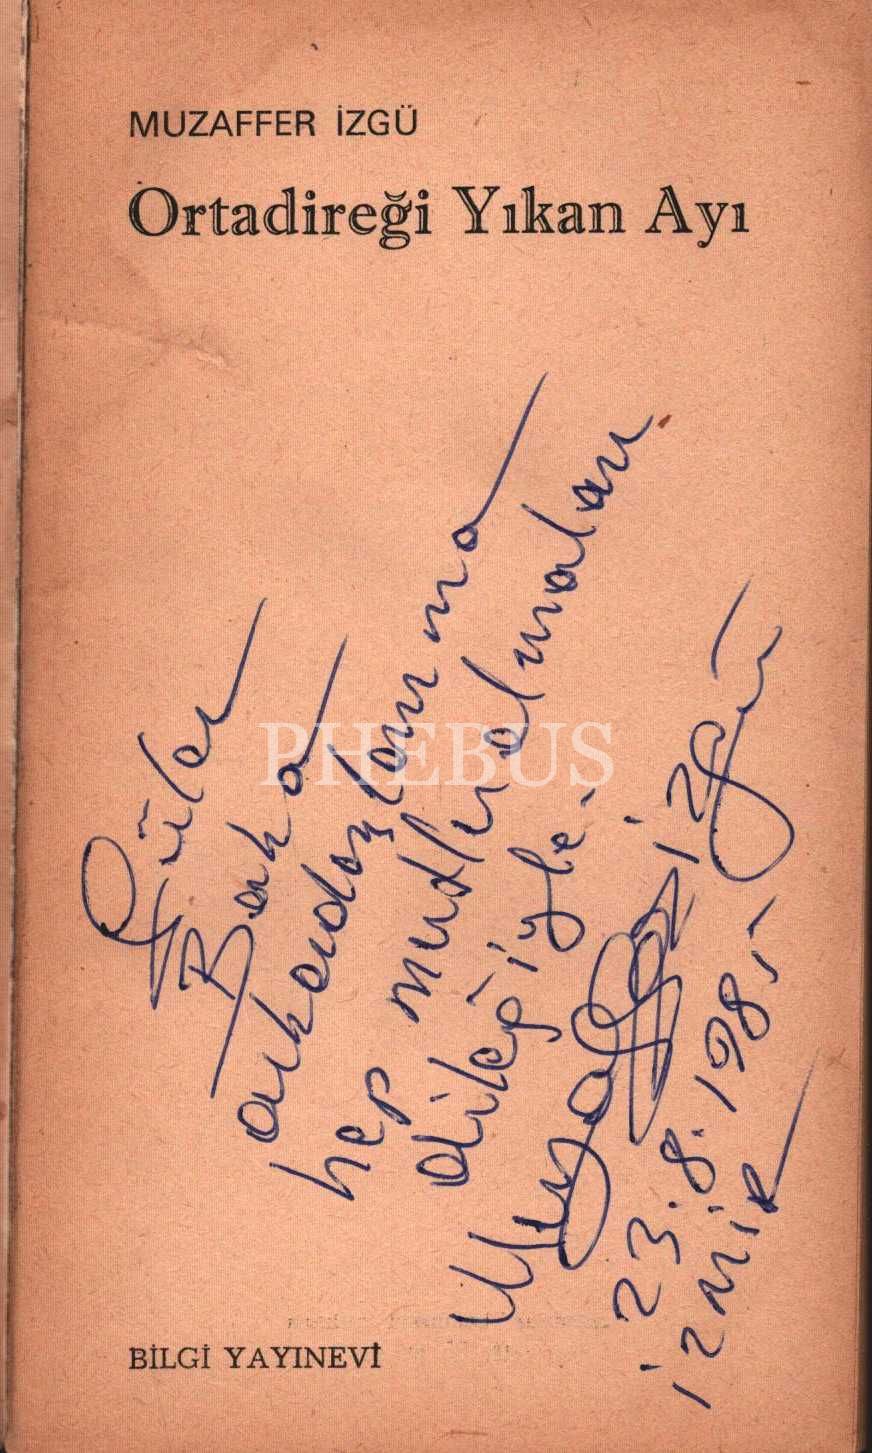 MUZAFFER İZGÜ
Ortadireği Yıkan Ayı
Güler
Baka
arkadaşlarıma
hep mutlu olmaları
dileğiyle.
Muzaffer izgü
23.8.1985
izmiR
PHEBUS
BİLGİ YAYINEVİ